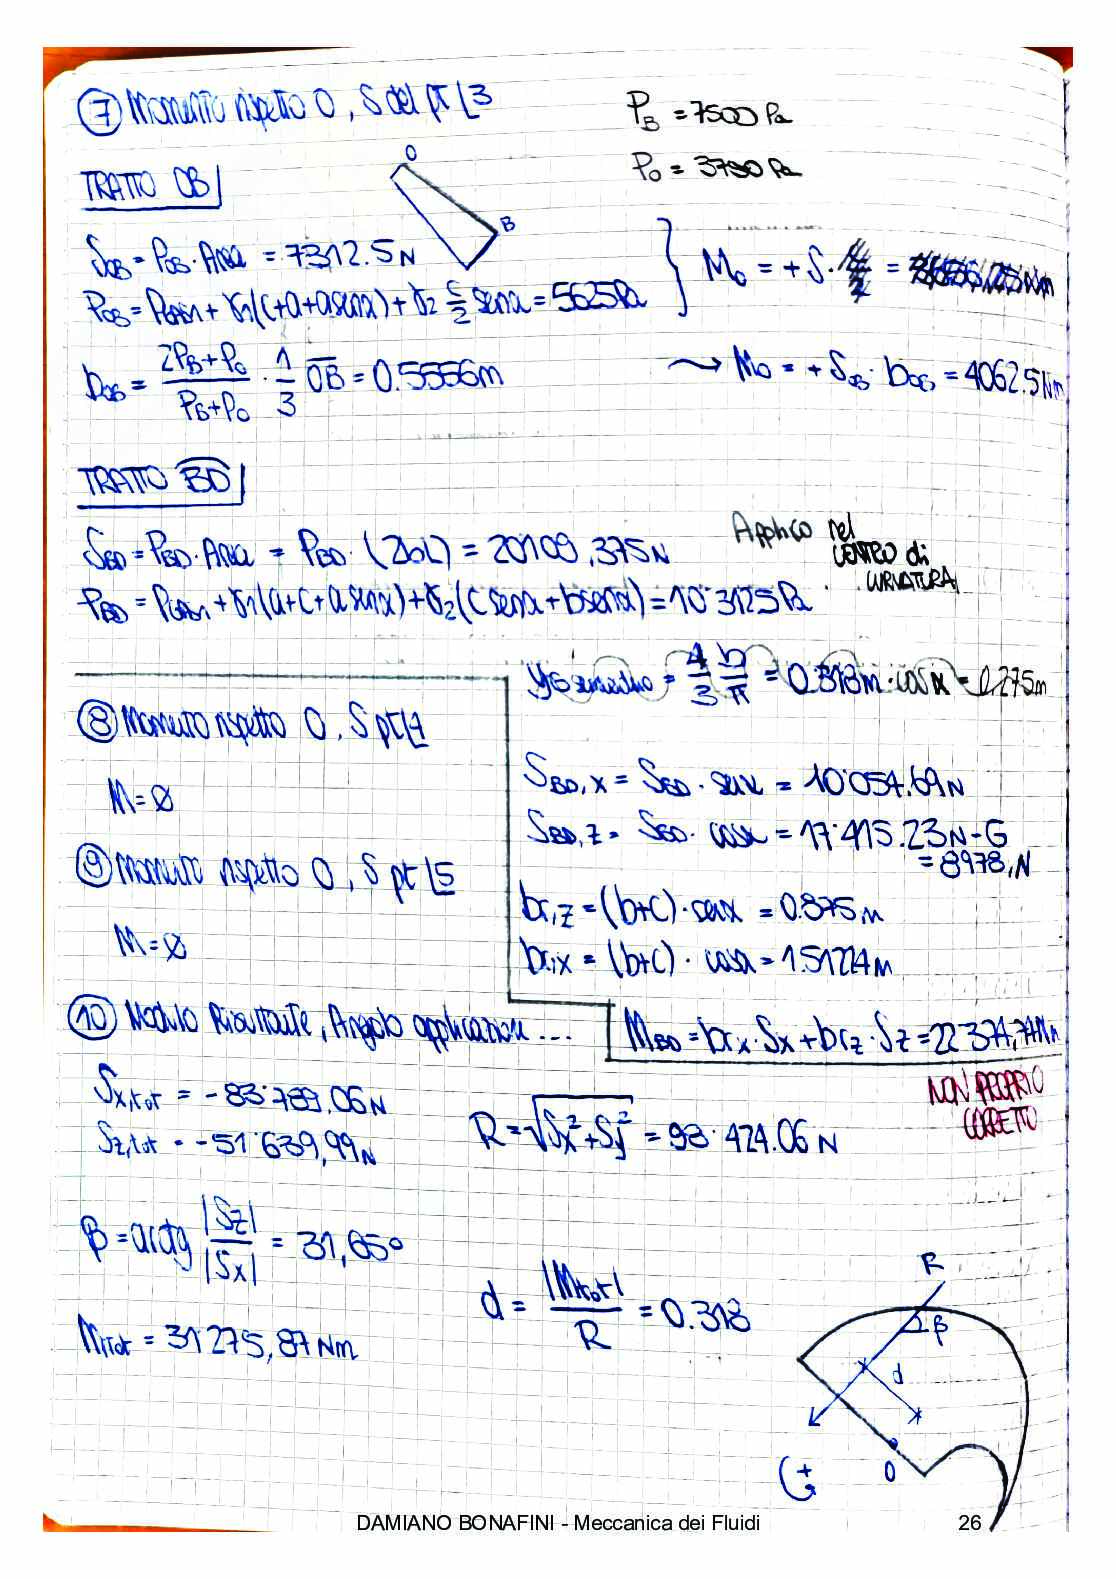 ⑦ Momento rispetto O, S del pt L3
P_B = 7500 Pa
P_O = 3750 Pa
TRATTO OB
O
B
S_OB = P_OB · Area = 7312.5 N
P_OB = + γ1(c+a+asenα) + γ2 c/2 senα = 5625 Pa
M_O = + S ·
b_OB = (2P_B+P_O)/(P_B+P_O) · 1/3 OB = 0.5556 m
→ M_O = + S_OB · b_OB = 4062.5 Nm
TRATTO BD
S_BD = P_BD · Area = P_BD · (2bL) = 20109,375 N
Applico nel
CENTRO di
CURVATURA
P_BD = + γ1(a+c+a senα) + γ2(c senα + b senα) = 10'3125 Pa
yG = 4/3 b/π = 0.318 m · cosα = 0,275 m
⑧ Momento rispetto O, S pt L4
M = ∅
S_BD,x = S_BD · senα = 10'054.69 N
S_BD,z = S_BD · cosα = 17'415.23 N - G
= 8978, N
⑨ Momento rispetto O, S pt L5
M = ∅
br,z = (b+c) · senα = 0.875 m
br,x = (b+c) · cosα = 1.51224 m
⑩ Modulo Risultante, Angolo applicazione ...
M_BD = br_x · S_x + br_z · S_z = 22'374,74 Nm
NON PROPRIO
CORRETTO
S_x,tot = - 83'789.06 N
S_z,tot = - 51'639,99 N
R = √(S_x² + S_y²) = 98'424.06 N
β = arctg |S_z|/|S_x| = 31,65°
d = |M_tot|/R = 0.318
M_Tot = 31'275,87 Nm
R
β
d
O
+
DAMIANO BONAFINI - Meccanica dei Fluidi
26